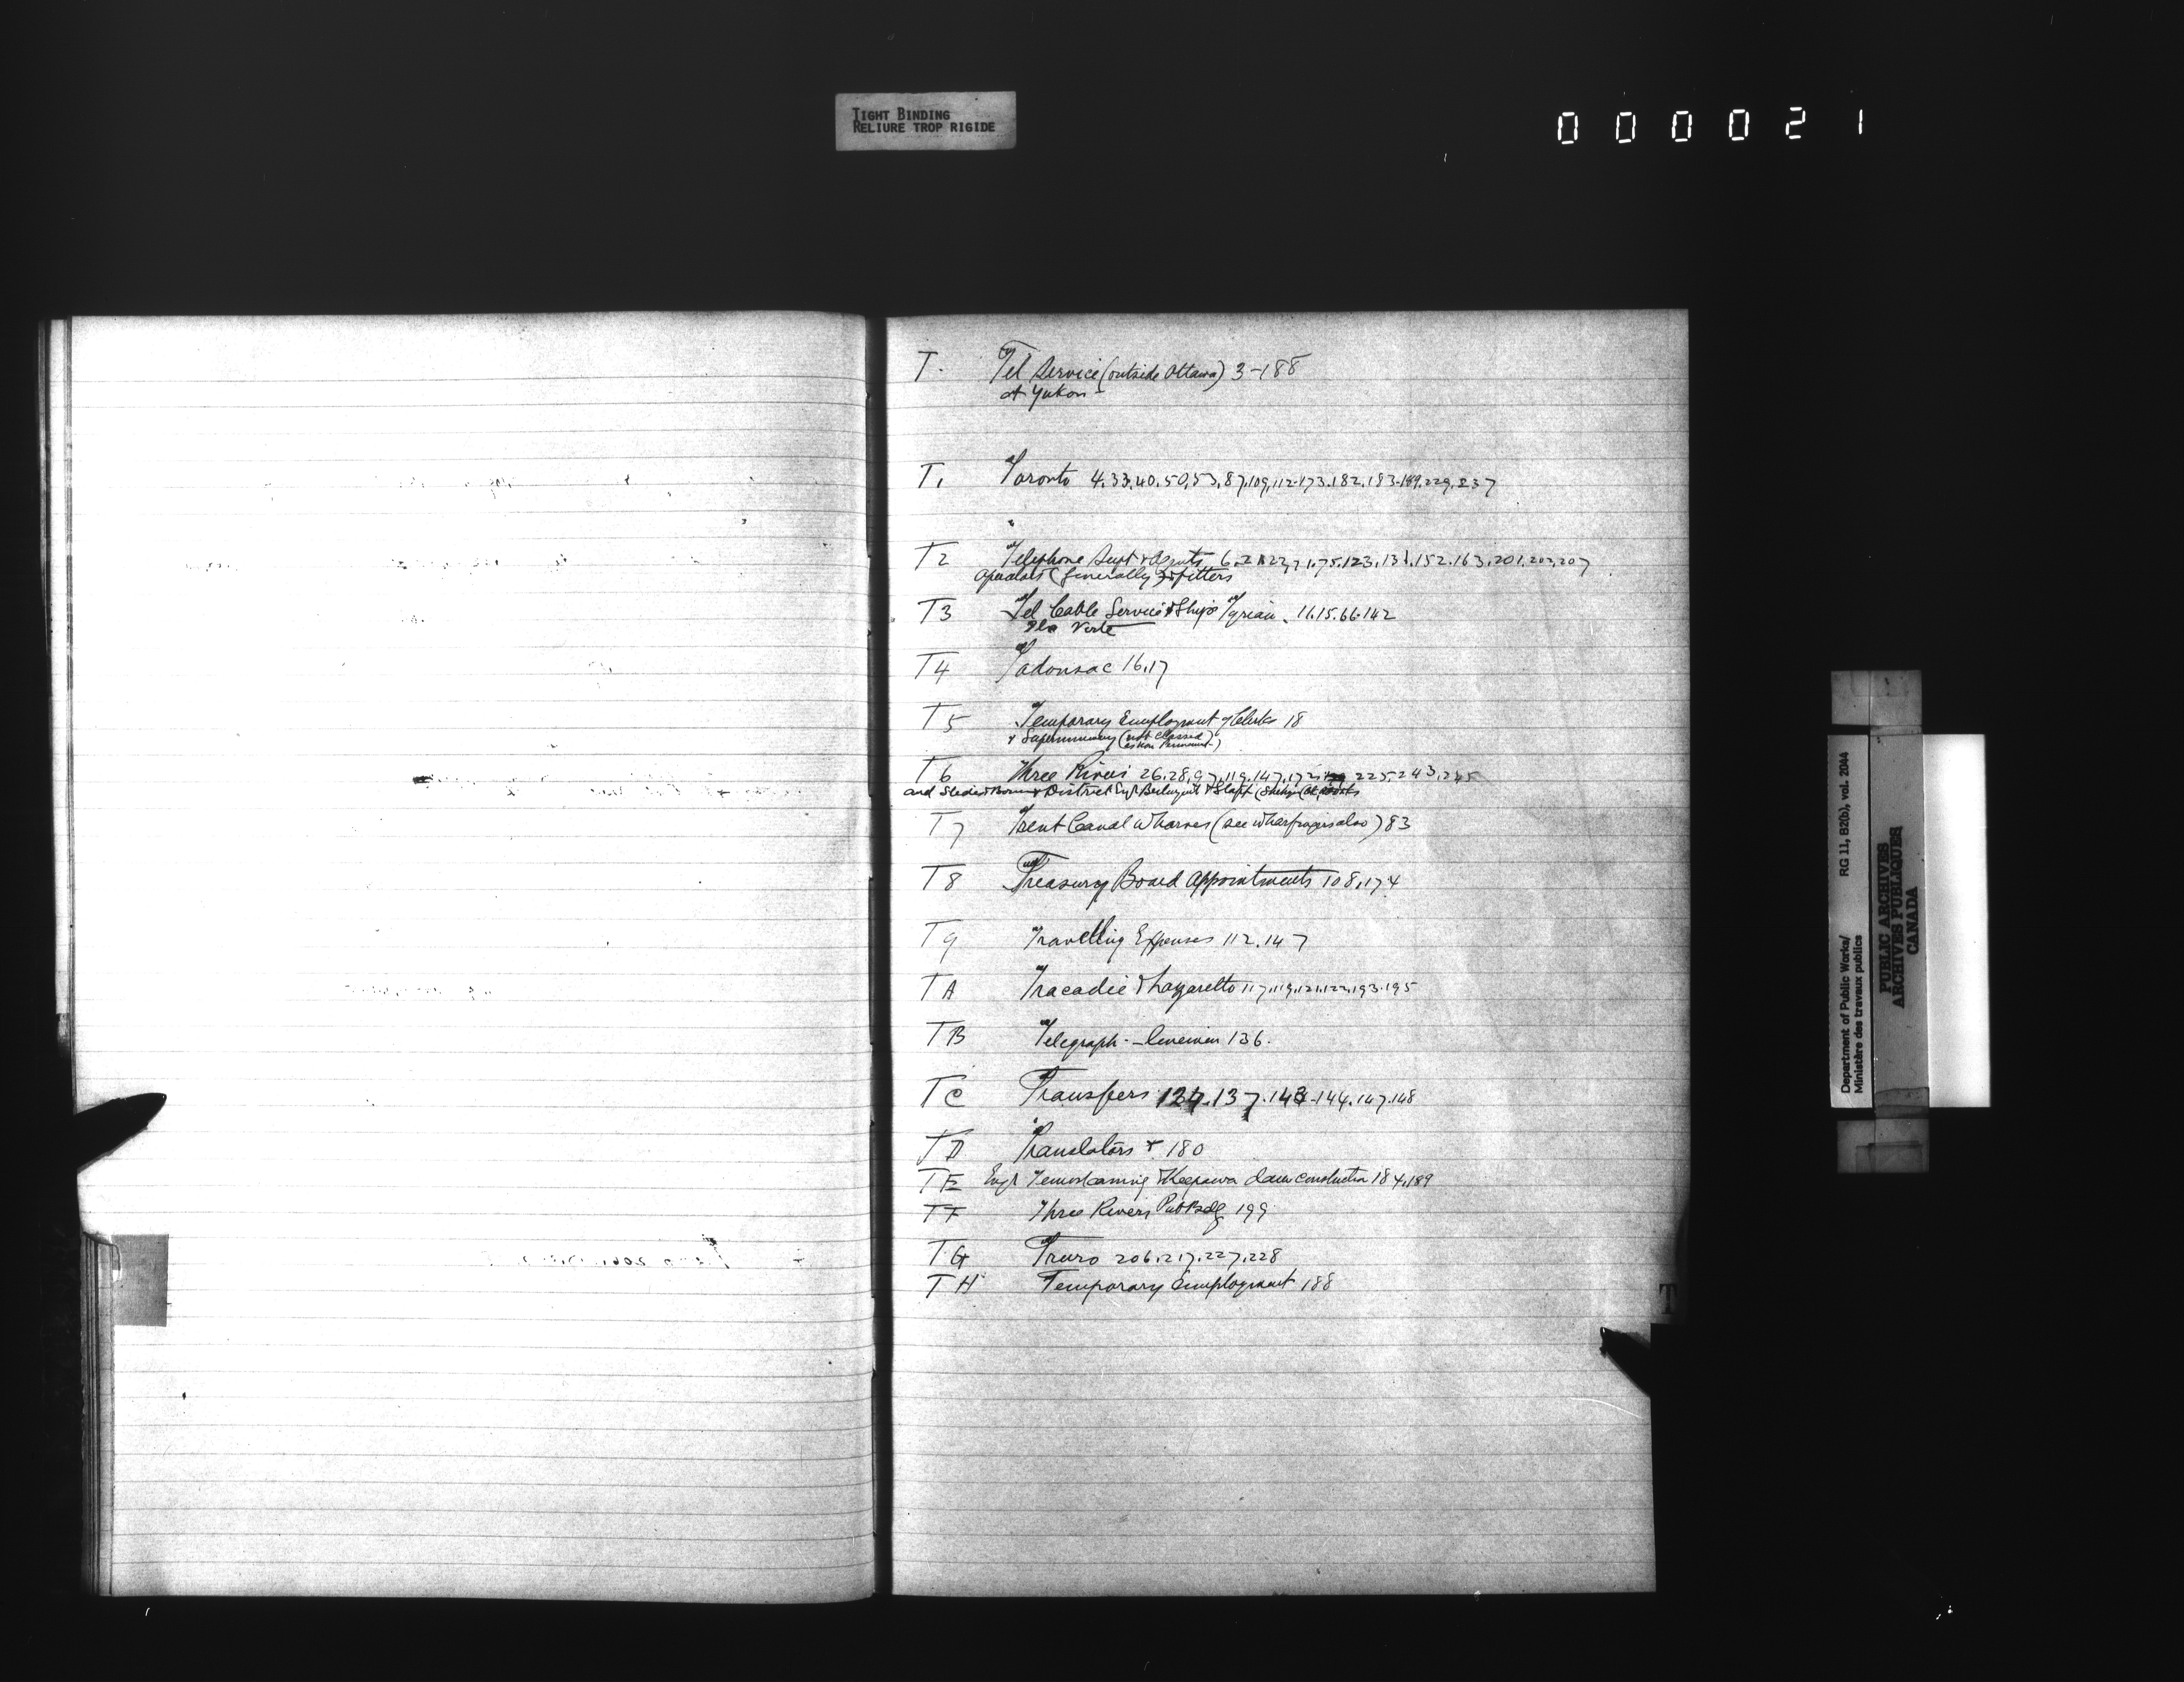 TIGHT BINDING
RELIURE TROP RIGIDE
000021
T. Tel Service (outside Ottawa) 3-188
at Yukon
T1 Toronto 4.33.40.50.53.87.109.112-173.182.183-189.229.237
T2 Telephone Supt & Agents 6.71.75.123.131.152.163.201.202.207
Operators (Generally) & fitters
T3 Tel Cable Service & Ships Tyrian 11.15.66.142
Verte
T4 Tadousac 16.17
T5 Temporary Employment of Clerks 18
& Supernumerary (not classed
as non Permanent)
T6 Three Rivers 26.28.97.119.147.172 225.243.245
and Slides & Booms & District Engr & Staff
T7 Trent Canal Wharves (see wharfingers also) 83
T8 Treasury Board Appointments 108.174
T9 Travelling Expenses 112.147
TA Tracadie & Lazzaretto 117.119.121.122.193.195
TB Telegraph - linemen 136.
TC Transfers 134.137.143-144.147.148
TD Translators & 180
TE Engr Temiscaming & Keepawa dam construction 184.189
TF Three Rivers Pub Bdg 199
TG Truro 206.217.227.228
TH Temporary Employment 188
T
Department of Public Works/
Ministère des travaux publics
RG 11, B2(b), vol. 2044
PUBLIC ARCHIVES
ARCHIVES PUBLIQUES
CANADA